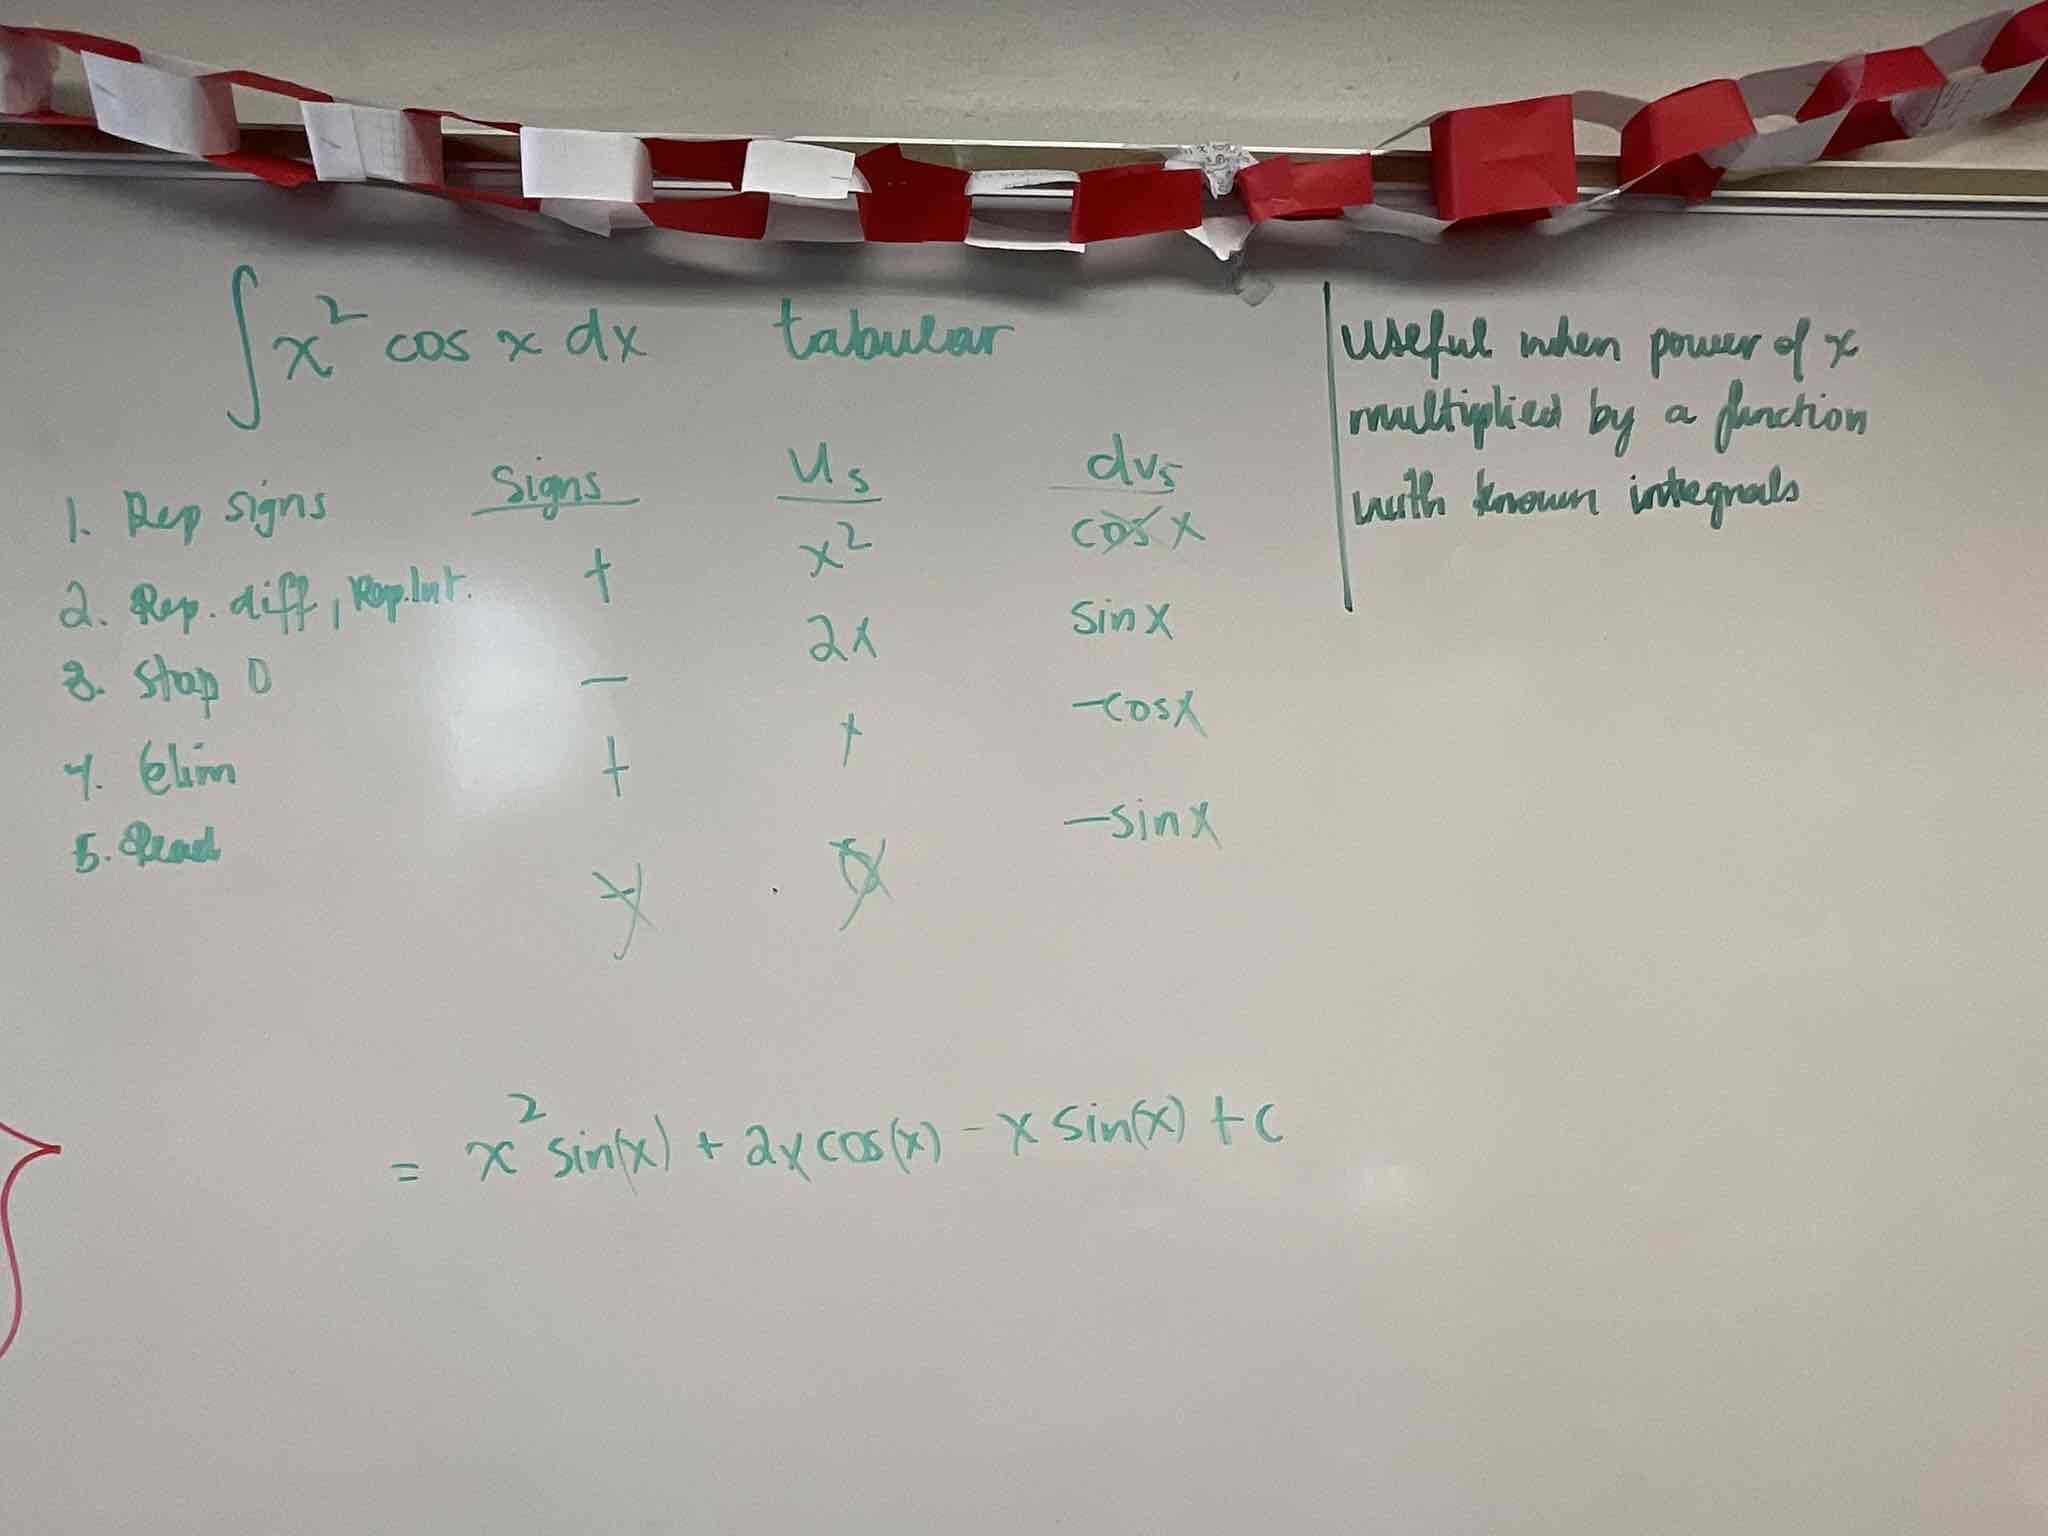 ∫x² cos x dx tabular
Useful when power of x
multiplied by a function
with known integrals
Signs Us dvs
1. Rep signs
2. Rep. diff, Rep. Int.
3. Stop 0
4. Elim
5. Read
+ x² cos x
− 2x sin x
+ x −cos x
− 0 −sin x
= x² sin(x) + 2x cos(x) − x sin(x) + c